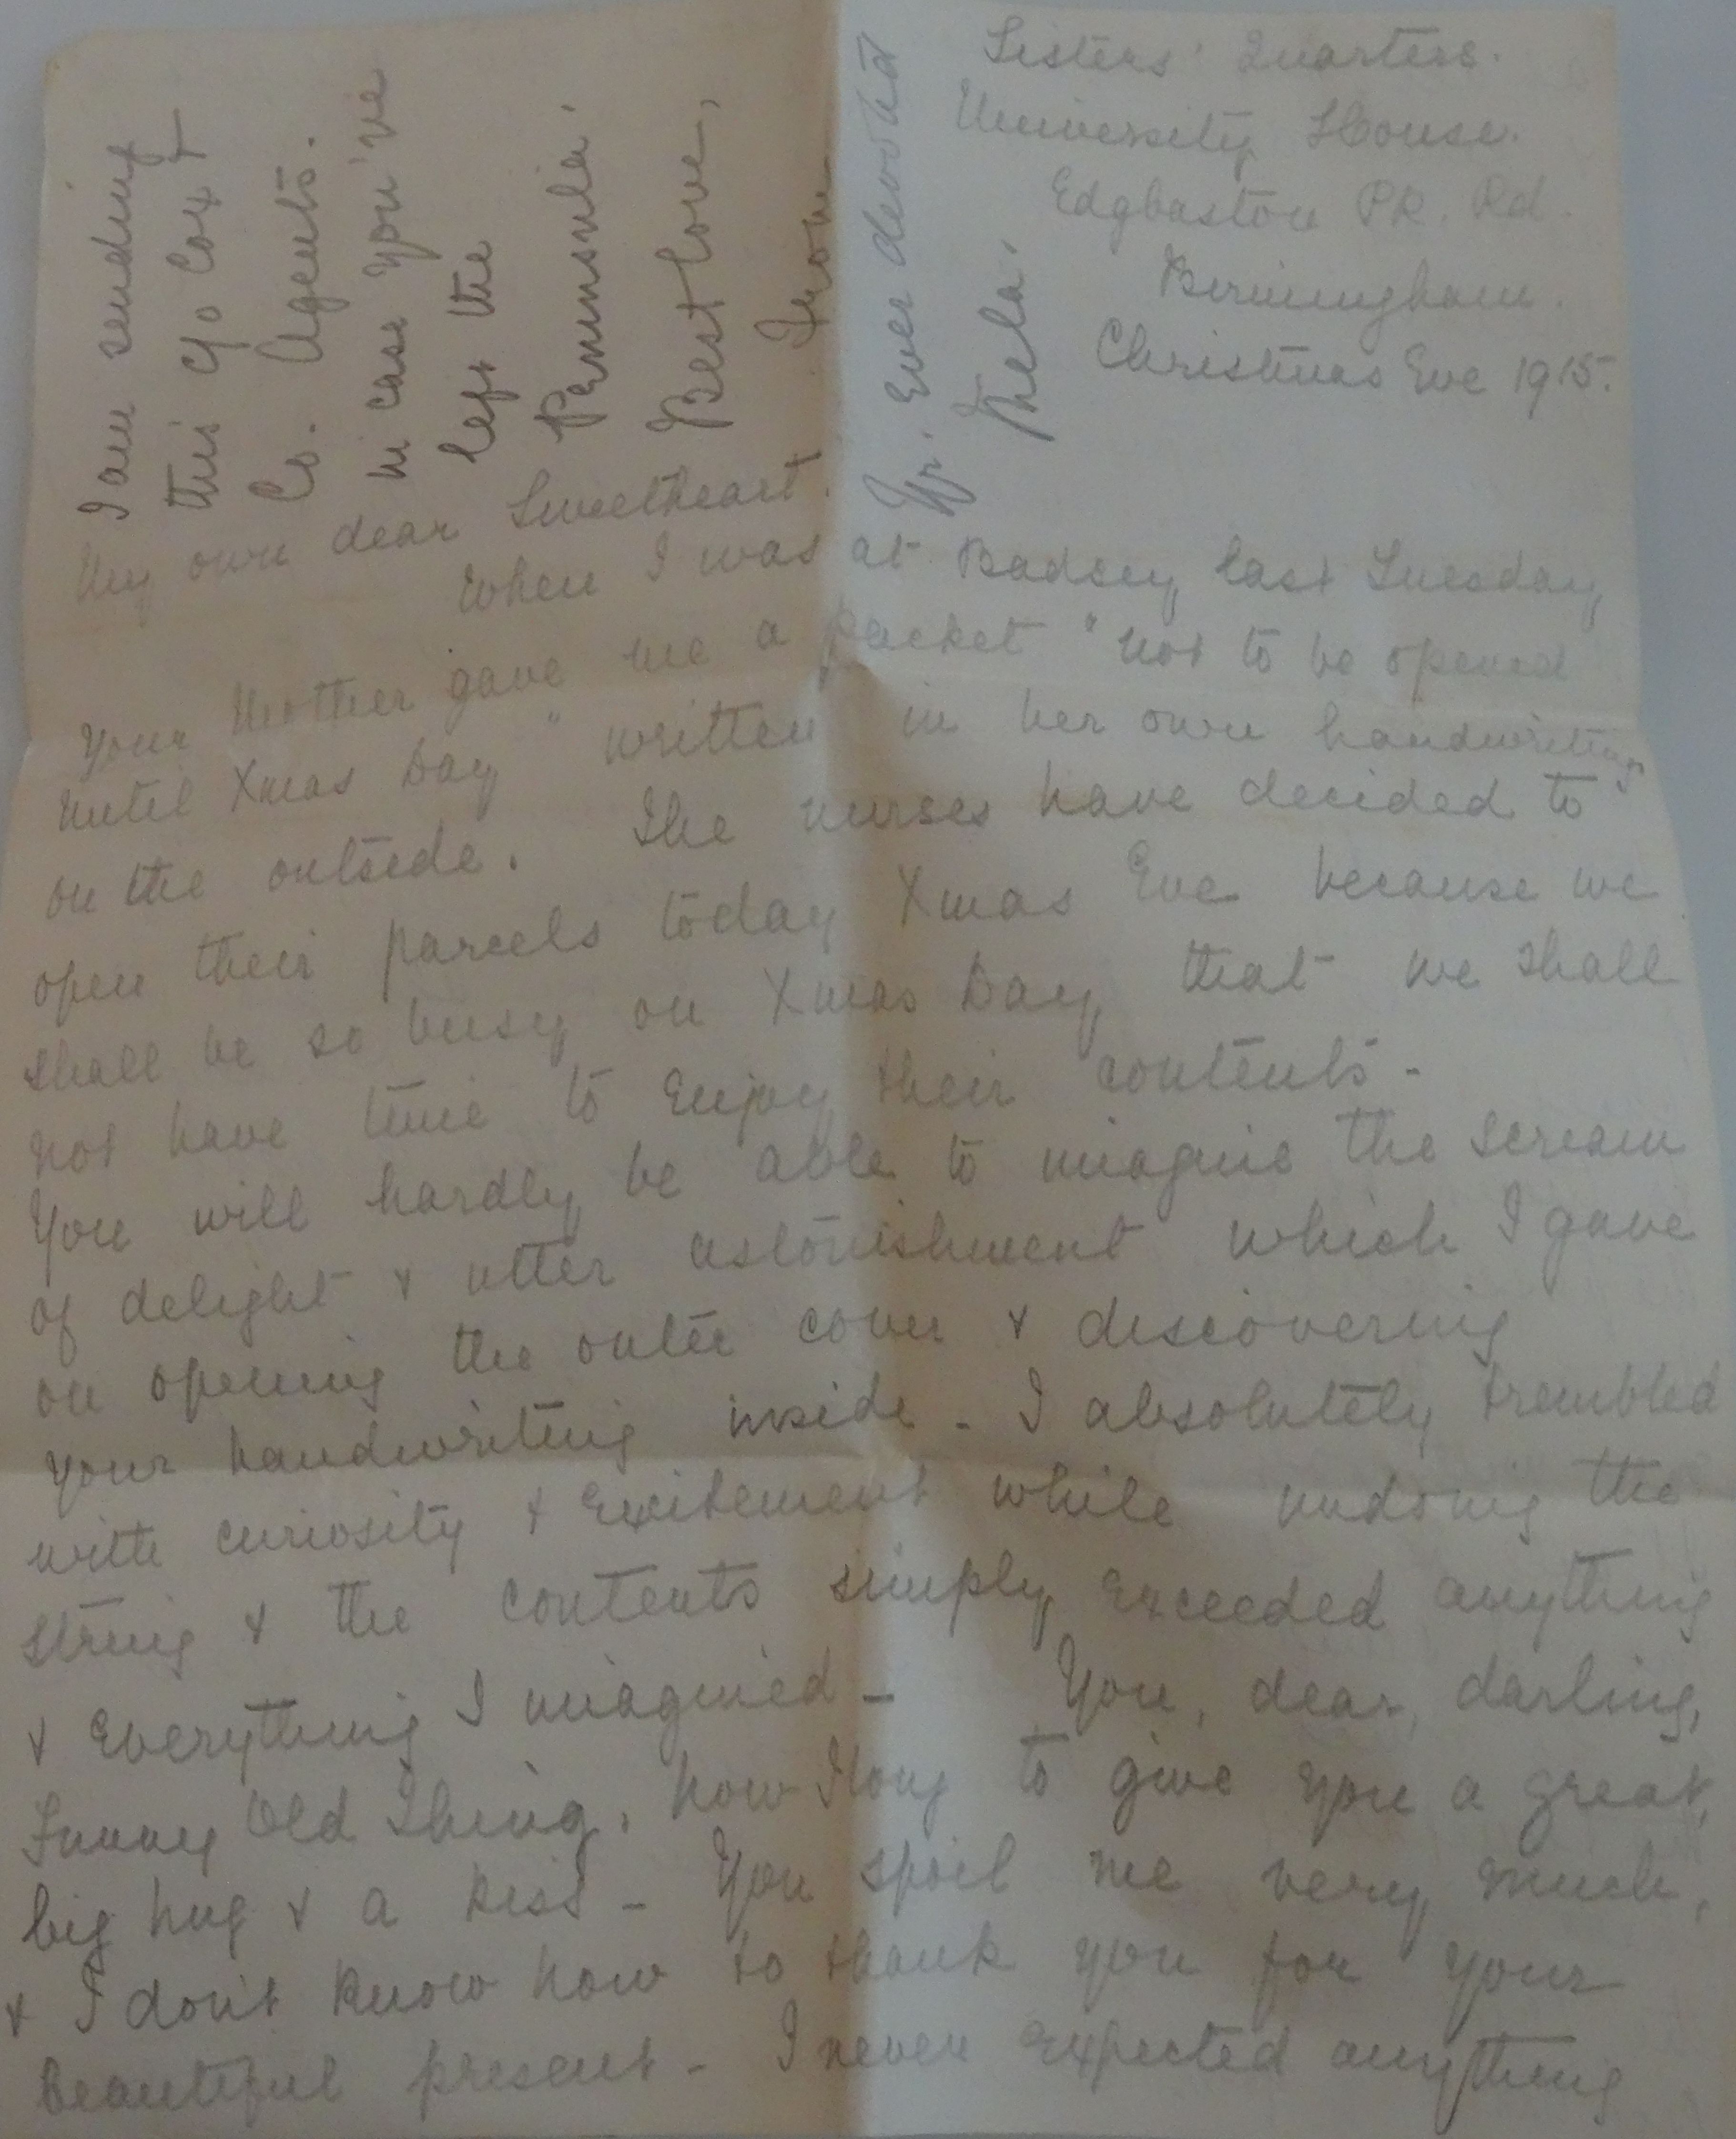 Sisters' Quarters.
University House.
Edgbaston Pk. Rd.
Birmingham.
Christmas Eve 1915.
My own dear Sweetheart.
When I was at Badsey last Tuesday
your Mother gave me a packet "not to be opened
until Xmas Day" written in her own handwriting
on the outside. The nurses have decided to
open their parcels today Xmas Eve because we
shall be so busy on Xmas Day that we shall
not have time to enjoy their contents -
You will hardly be able to imagine the scream
of delight & utter astonishment which I gave
on opening the outer cover & discovering
your handwriting inside - I absolutely trembled
with curiosity & excitement while undoing the
string & the contents simply exceeded anything
& everything I imagined - You, dear, darling,
Funny Old Thing, how I long to give you a great,
big hug & a kiss - You spoil me very much,
& I don't know how to thank you for your
beautiful present - I never expected anything
I am sending
this c/o Cox &
Co. Agents.
in case you've
left the
Peninsula.
Best love,
from
Yr. Ever devoted
Thela.